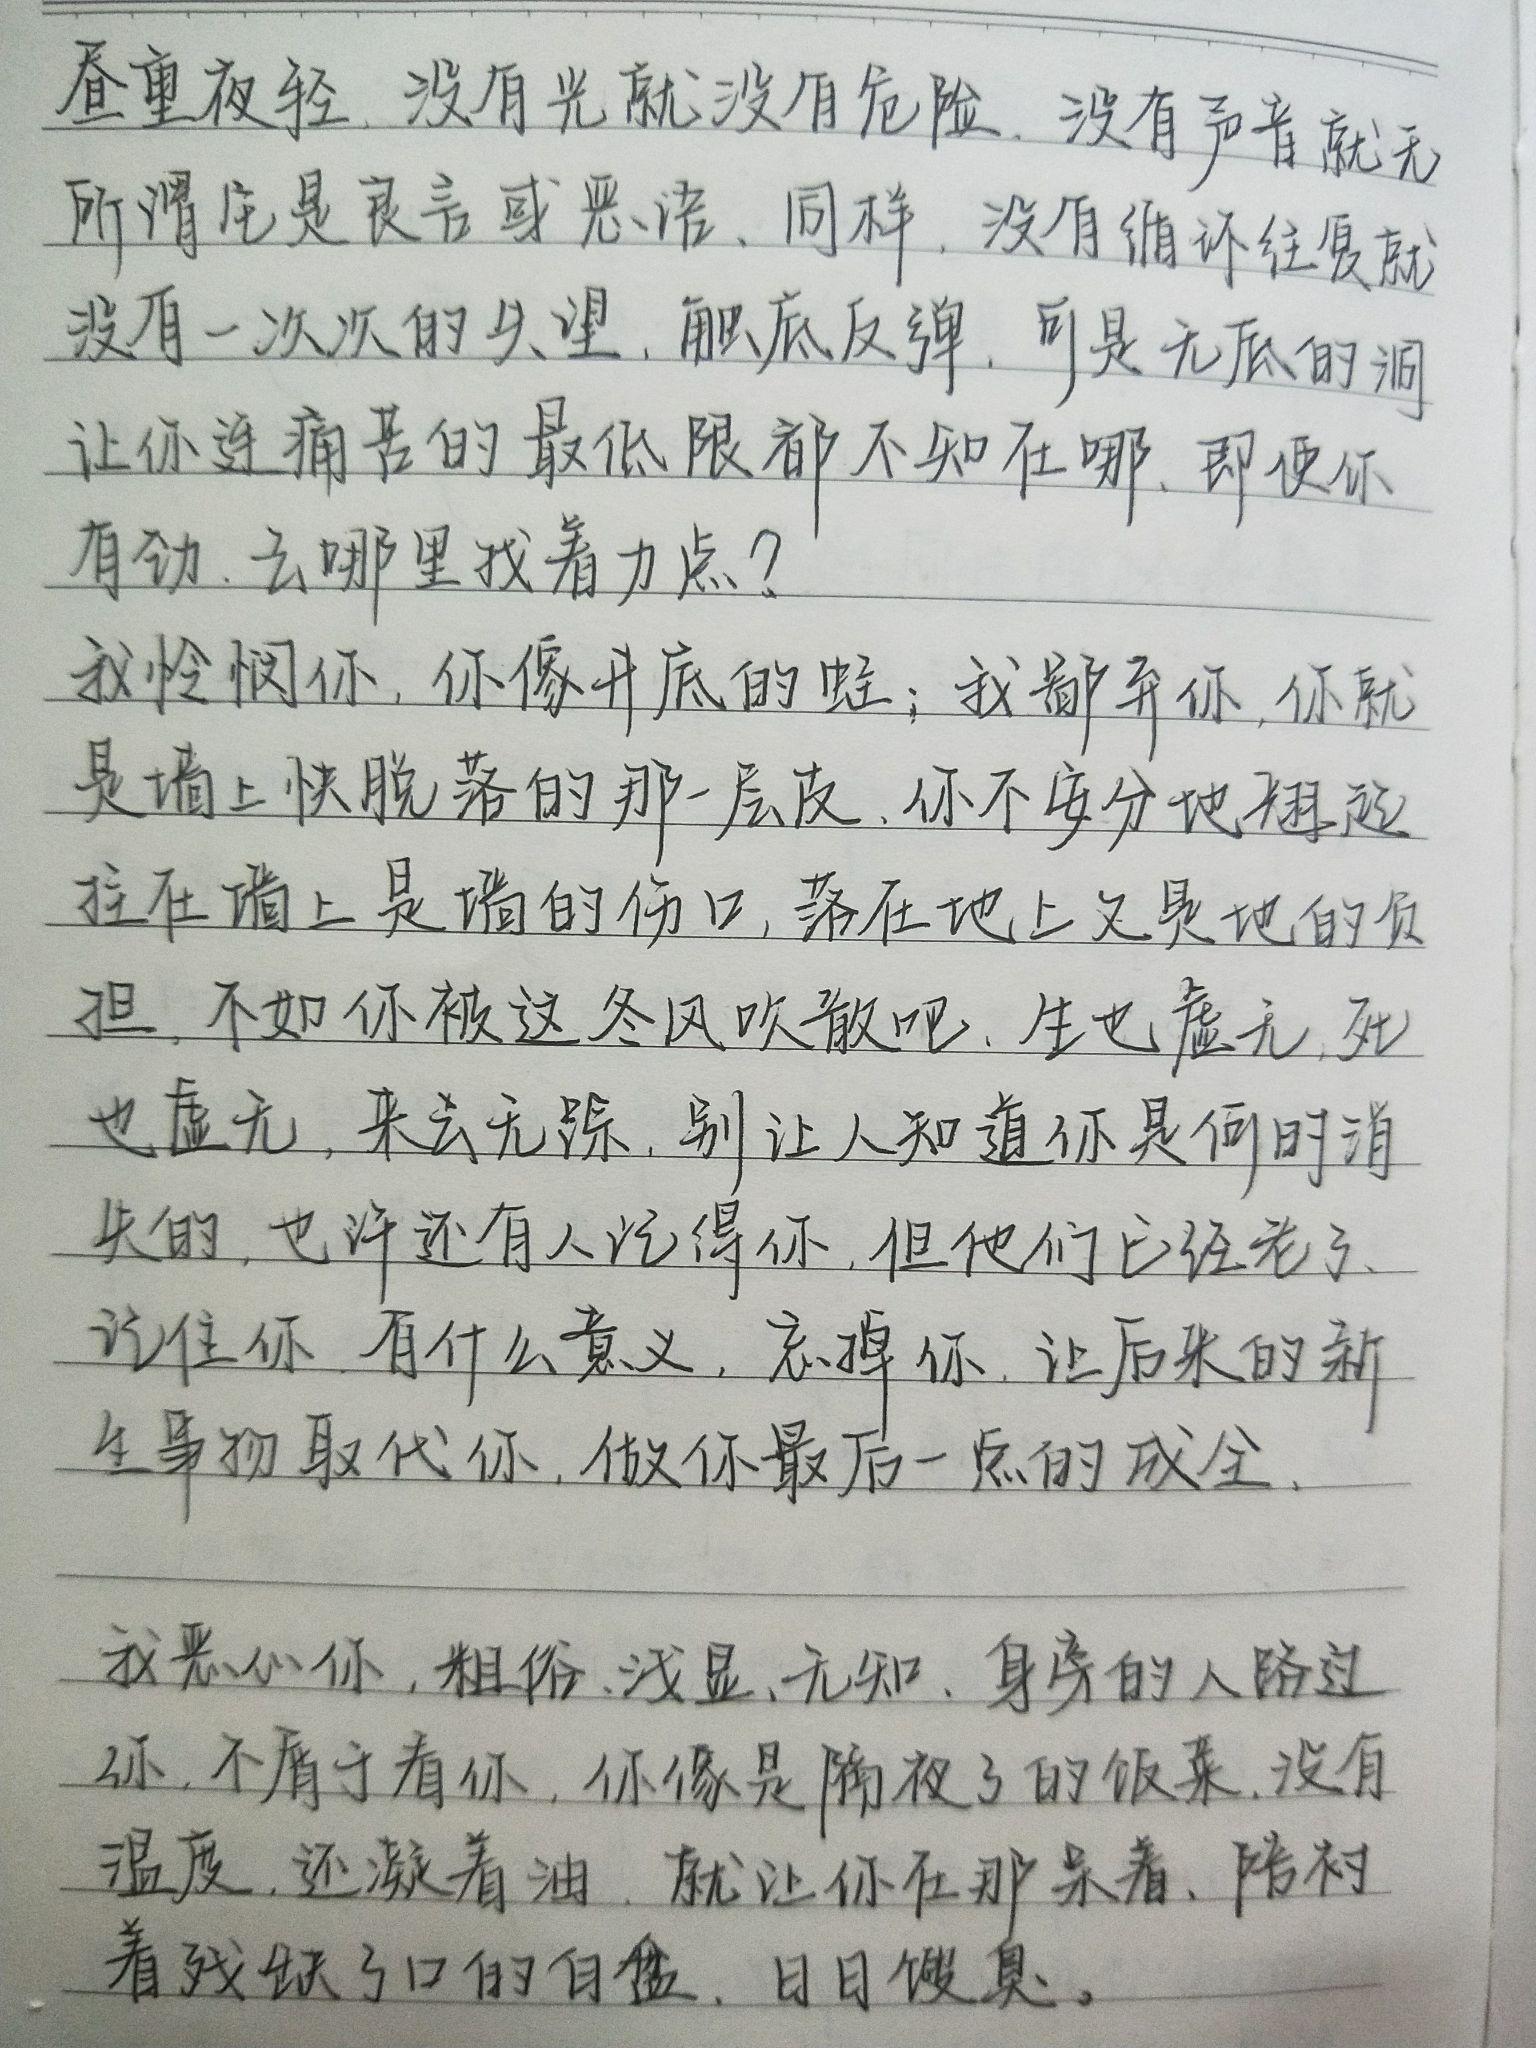 昼重夜轻、没有光就没有危险、没有声音就无
所谓它是良言或恶语、同样、没有循环往复就
没有一次次的失望、触底反弹、可是无底的洞
让你连痛苦的最低限都不知在哪、即便你
有劲、去哪里找着力点？
我怜悯你，你像井底的蛙；我鄙弃你，你就
是墙上快脱落的那一层皮、你不安分地翘起
挂在墙上是墙的伤口，落在地上又是地的负
担，不如你被这冬风吹散吧、生也虚无，死
也虚无，来去无踪、别让人知道你是何时消
失的，也许还有人记得你，但他们已经老了、
记住你、有什么意义，忘掉你、让后来的新
生事物取代你，做你最后一点的成全、
我恶心你，粗俗、浅显、无知、身旁的人路过
你、不屑于看你，你像是隔夜了的饭菜、没有
温度，还凝着油、就让你在那呆着、陪衬
着残缺了口的白盘、日日馊臭。